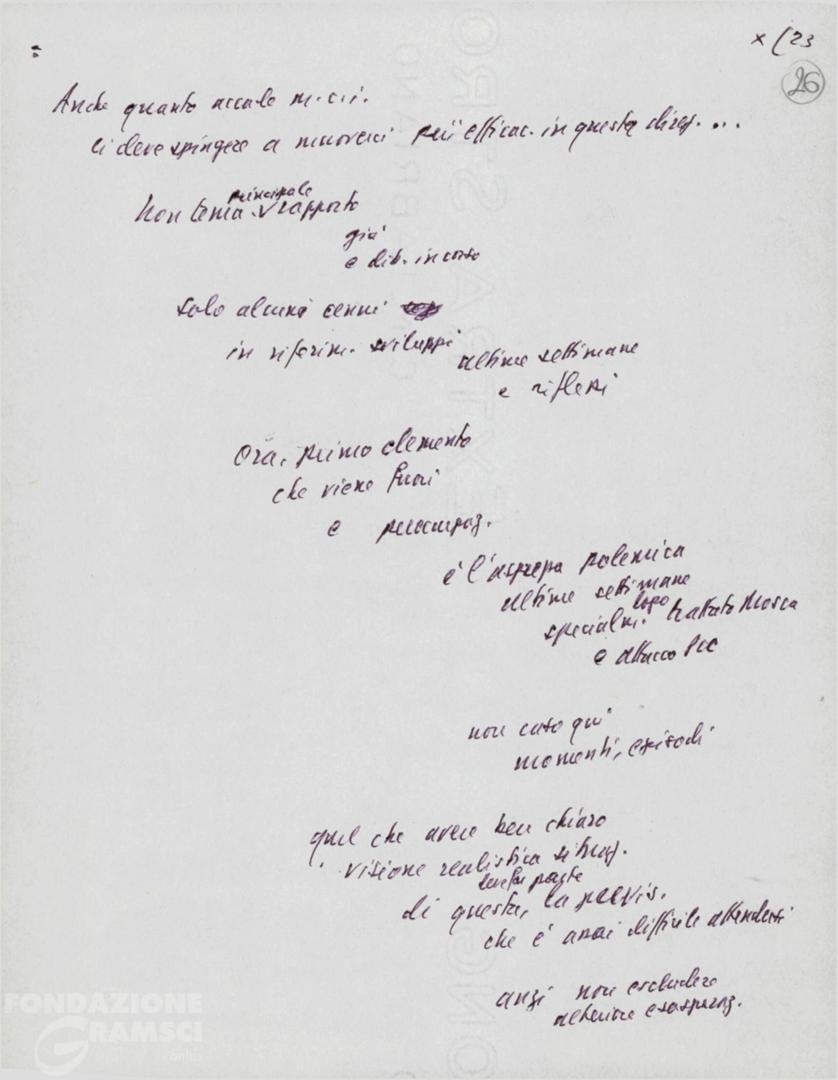 x (23
26
Anche quanto accade m.c.i.
ci deve spingere a muoverci più efficac. in questa direz. ...
principale
Non tema rapporto
già
e dib. in corso
solo alcuni cenni
in riferim. sviluppi ultime settimane
e riflessi
Ora, primo elemento
che viene fuori
e preoccupaz.
è l'asprezza polemica
ultime settimane
specialm. dopo trattato Mosca
e attacco Pcc
non cito qui
momenti, episodi
quel che avere ben chiaro
visione realistica situaz.
di questa, la previs.
che è assai difficile attendersi
anzi non escludere
ulteriore esasperaz.
FONDAZIONE
GRAMSCI
onlus